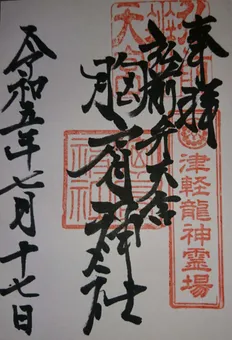 奉拝
津軽龍神霊場
弘前弁天宮
胸肩神社
令和五年七月十七日